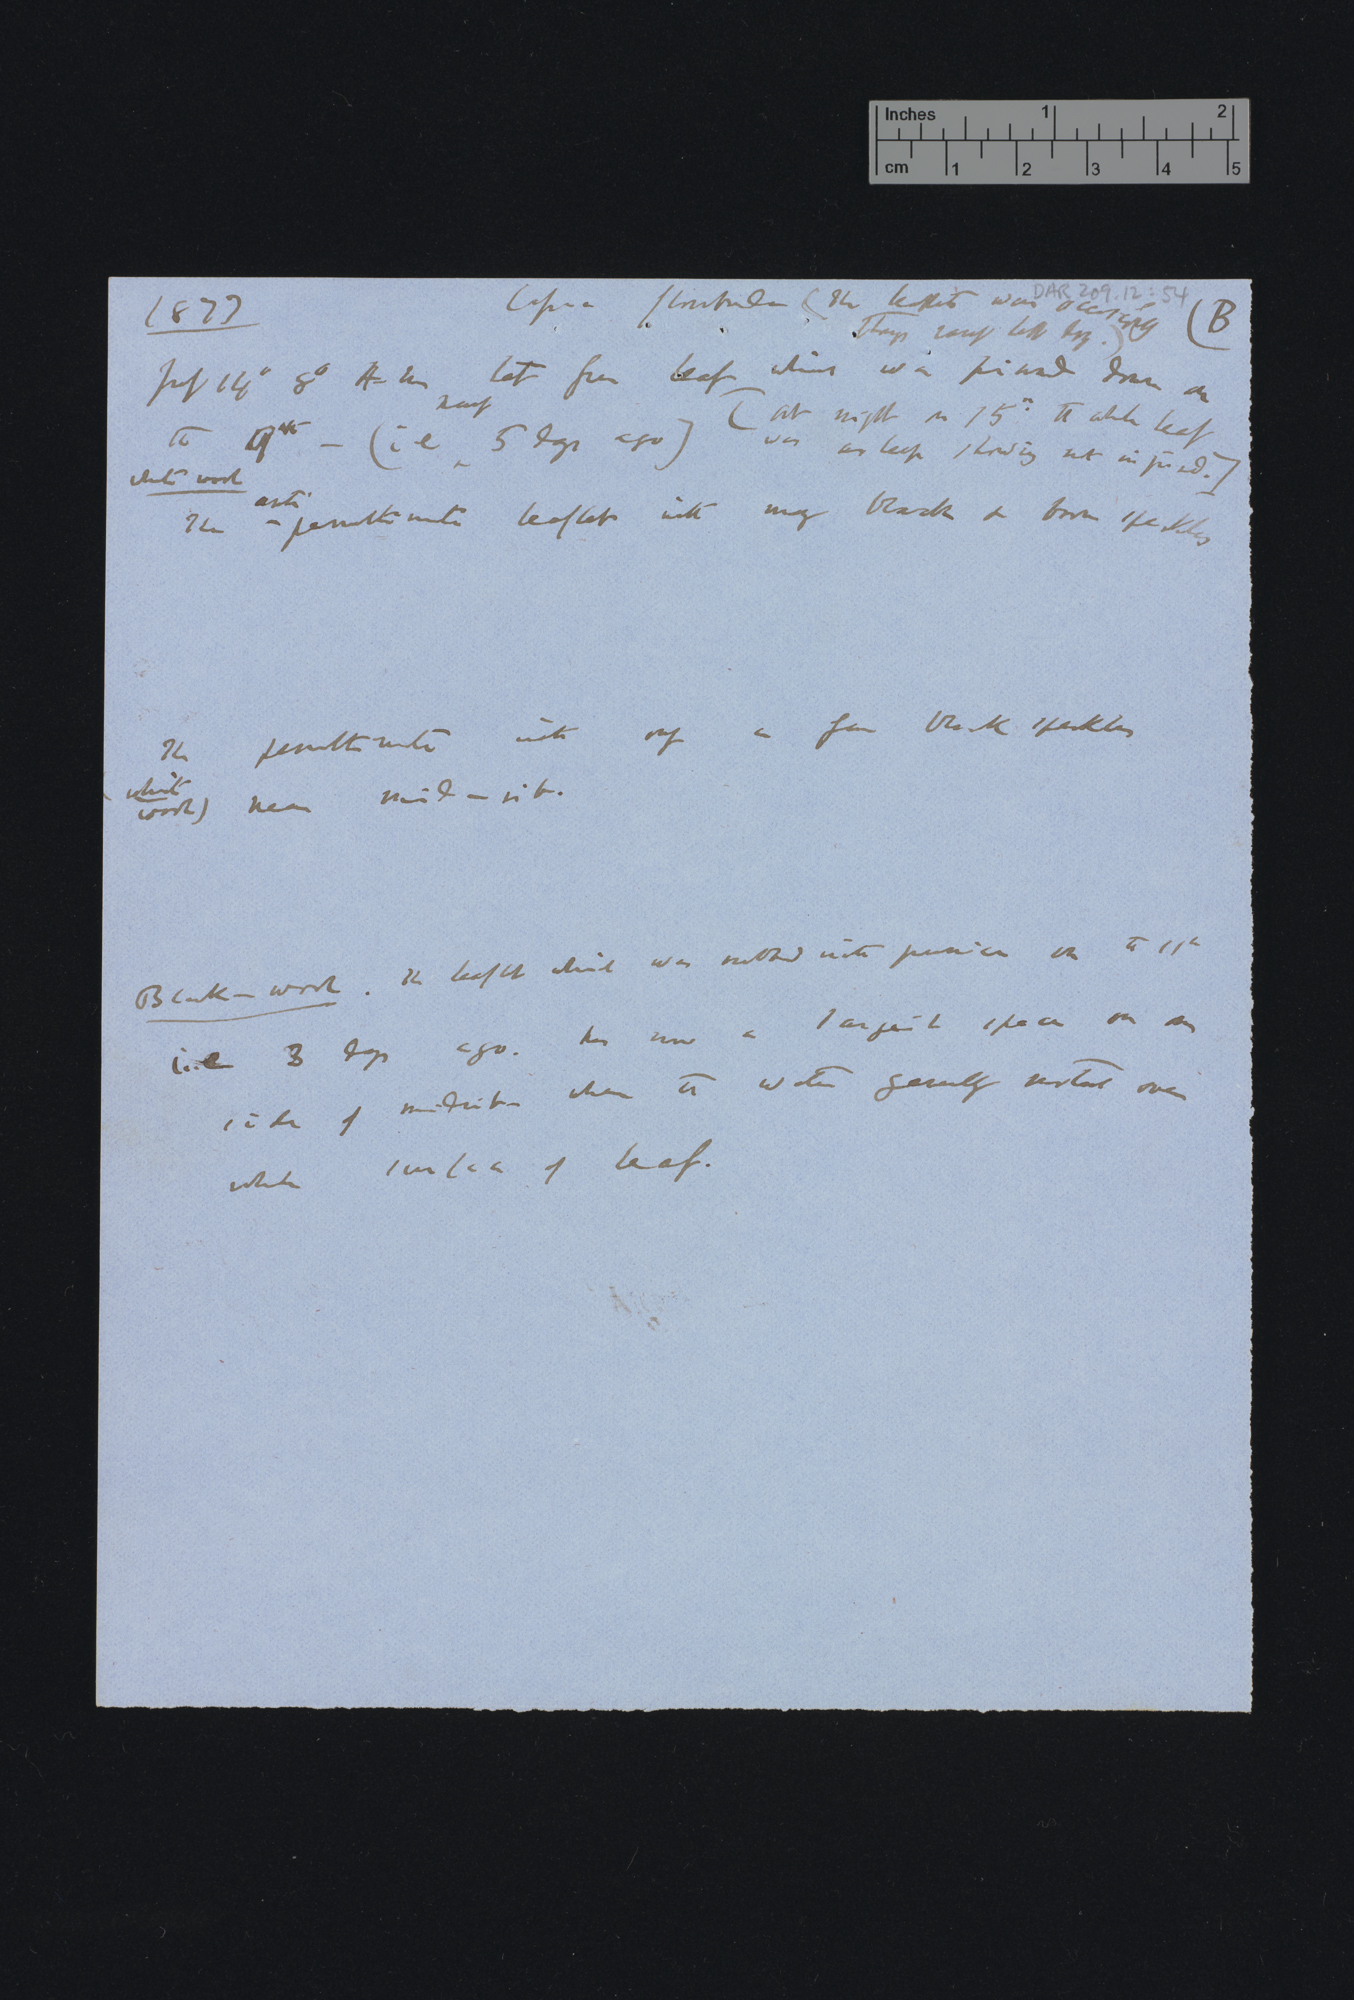 Inches 1 2
cm 1 2 3 4 5
DAR 209.12:54
1877 Cassia floribunda (The leaflets was (B
left dry.)
14° 8° A.m. let free leaf which was pinned down on
the 9th — (i.e nearly 5 days ago) [at night on 15th the whole leaf
was asleep showing not injured.]
white wool
The anti-penultimate leaflets with many black or brown speckles
The penultimate with only a few black speckles
(white
wool) near mid-rib.
Black-wool. The leaflet which was rubbed with on the 11th
i.e 3 days ago. has now a largish space on one
side of midrib where the water generally rested over
whole surface of leaf.